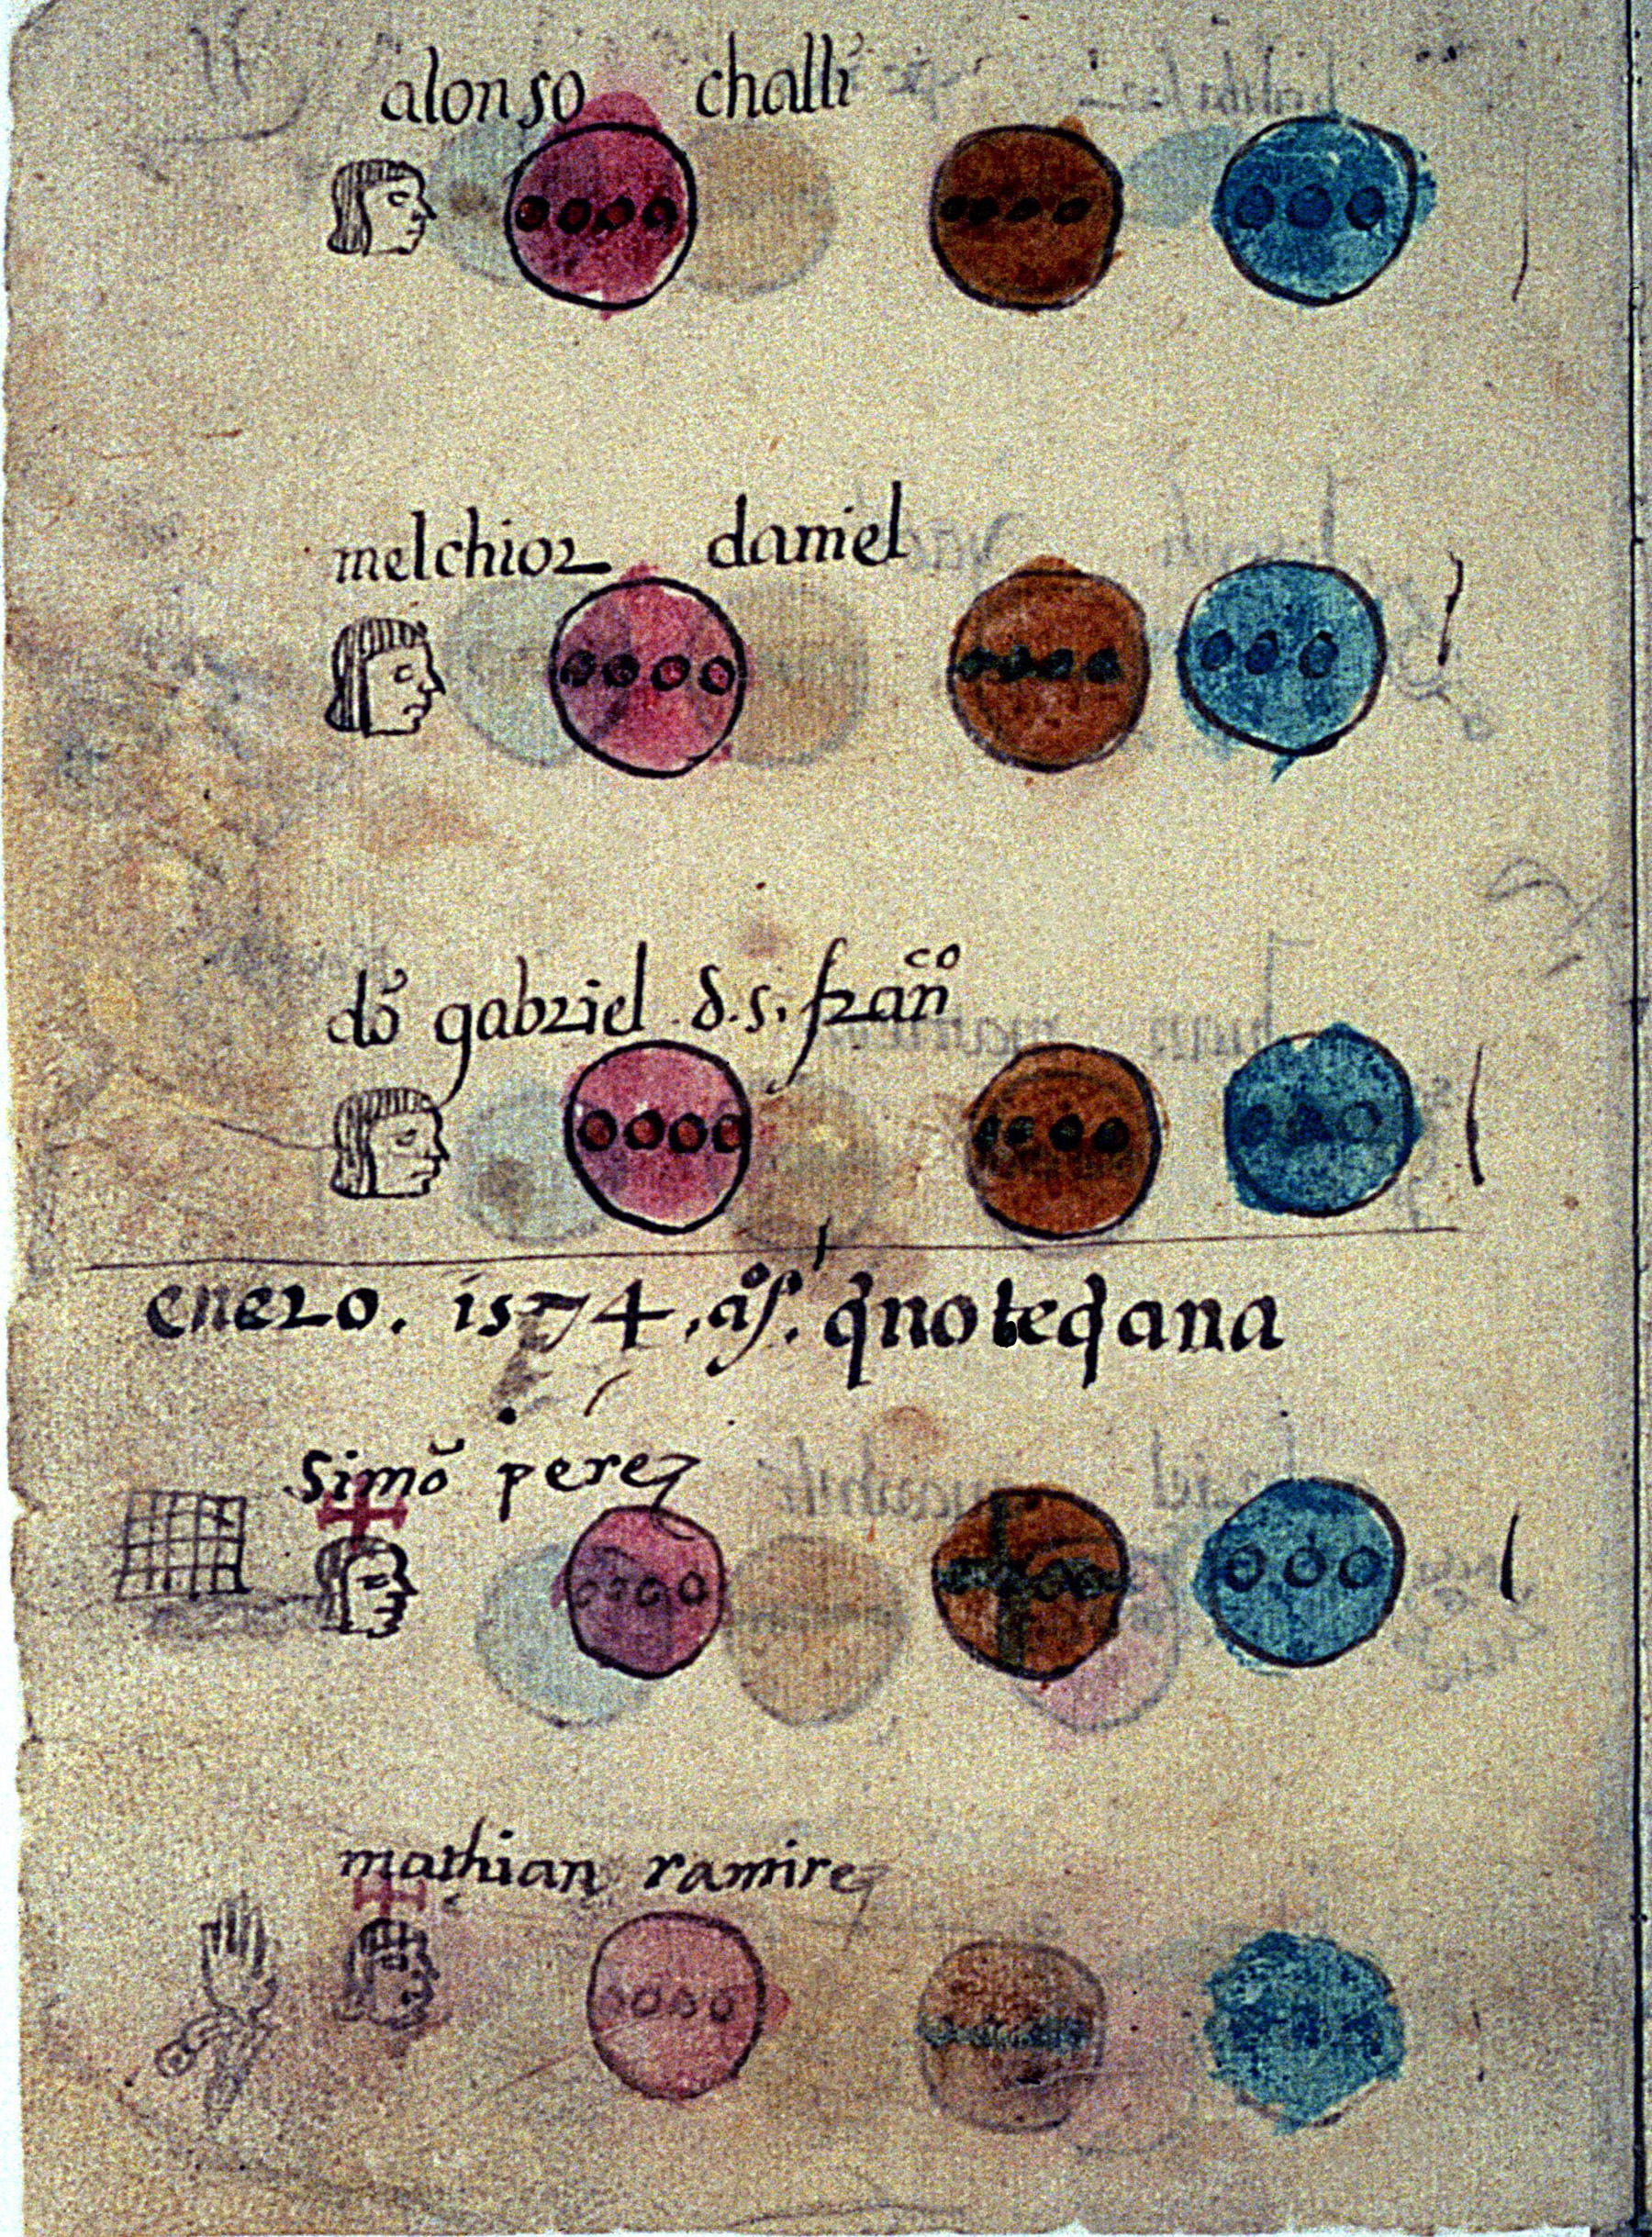 alonso challi
melchior daniel
dō gabriel d.s. fran̄co
enero. 1574. aºs. q̄noteq̄ana
simō perez
mathian ramirez